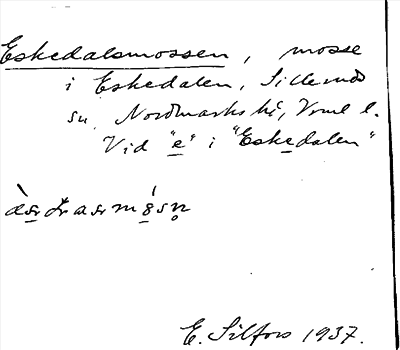 Eskedalsmossen, mosse
i Eskedalen, Sillerud
sn, Nordmarks hd, Vrml l.
Vid "e" i "Eskedalen"
E. Silfors 1937.